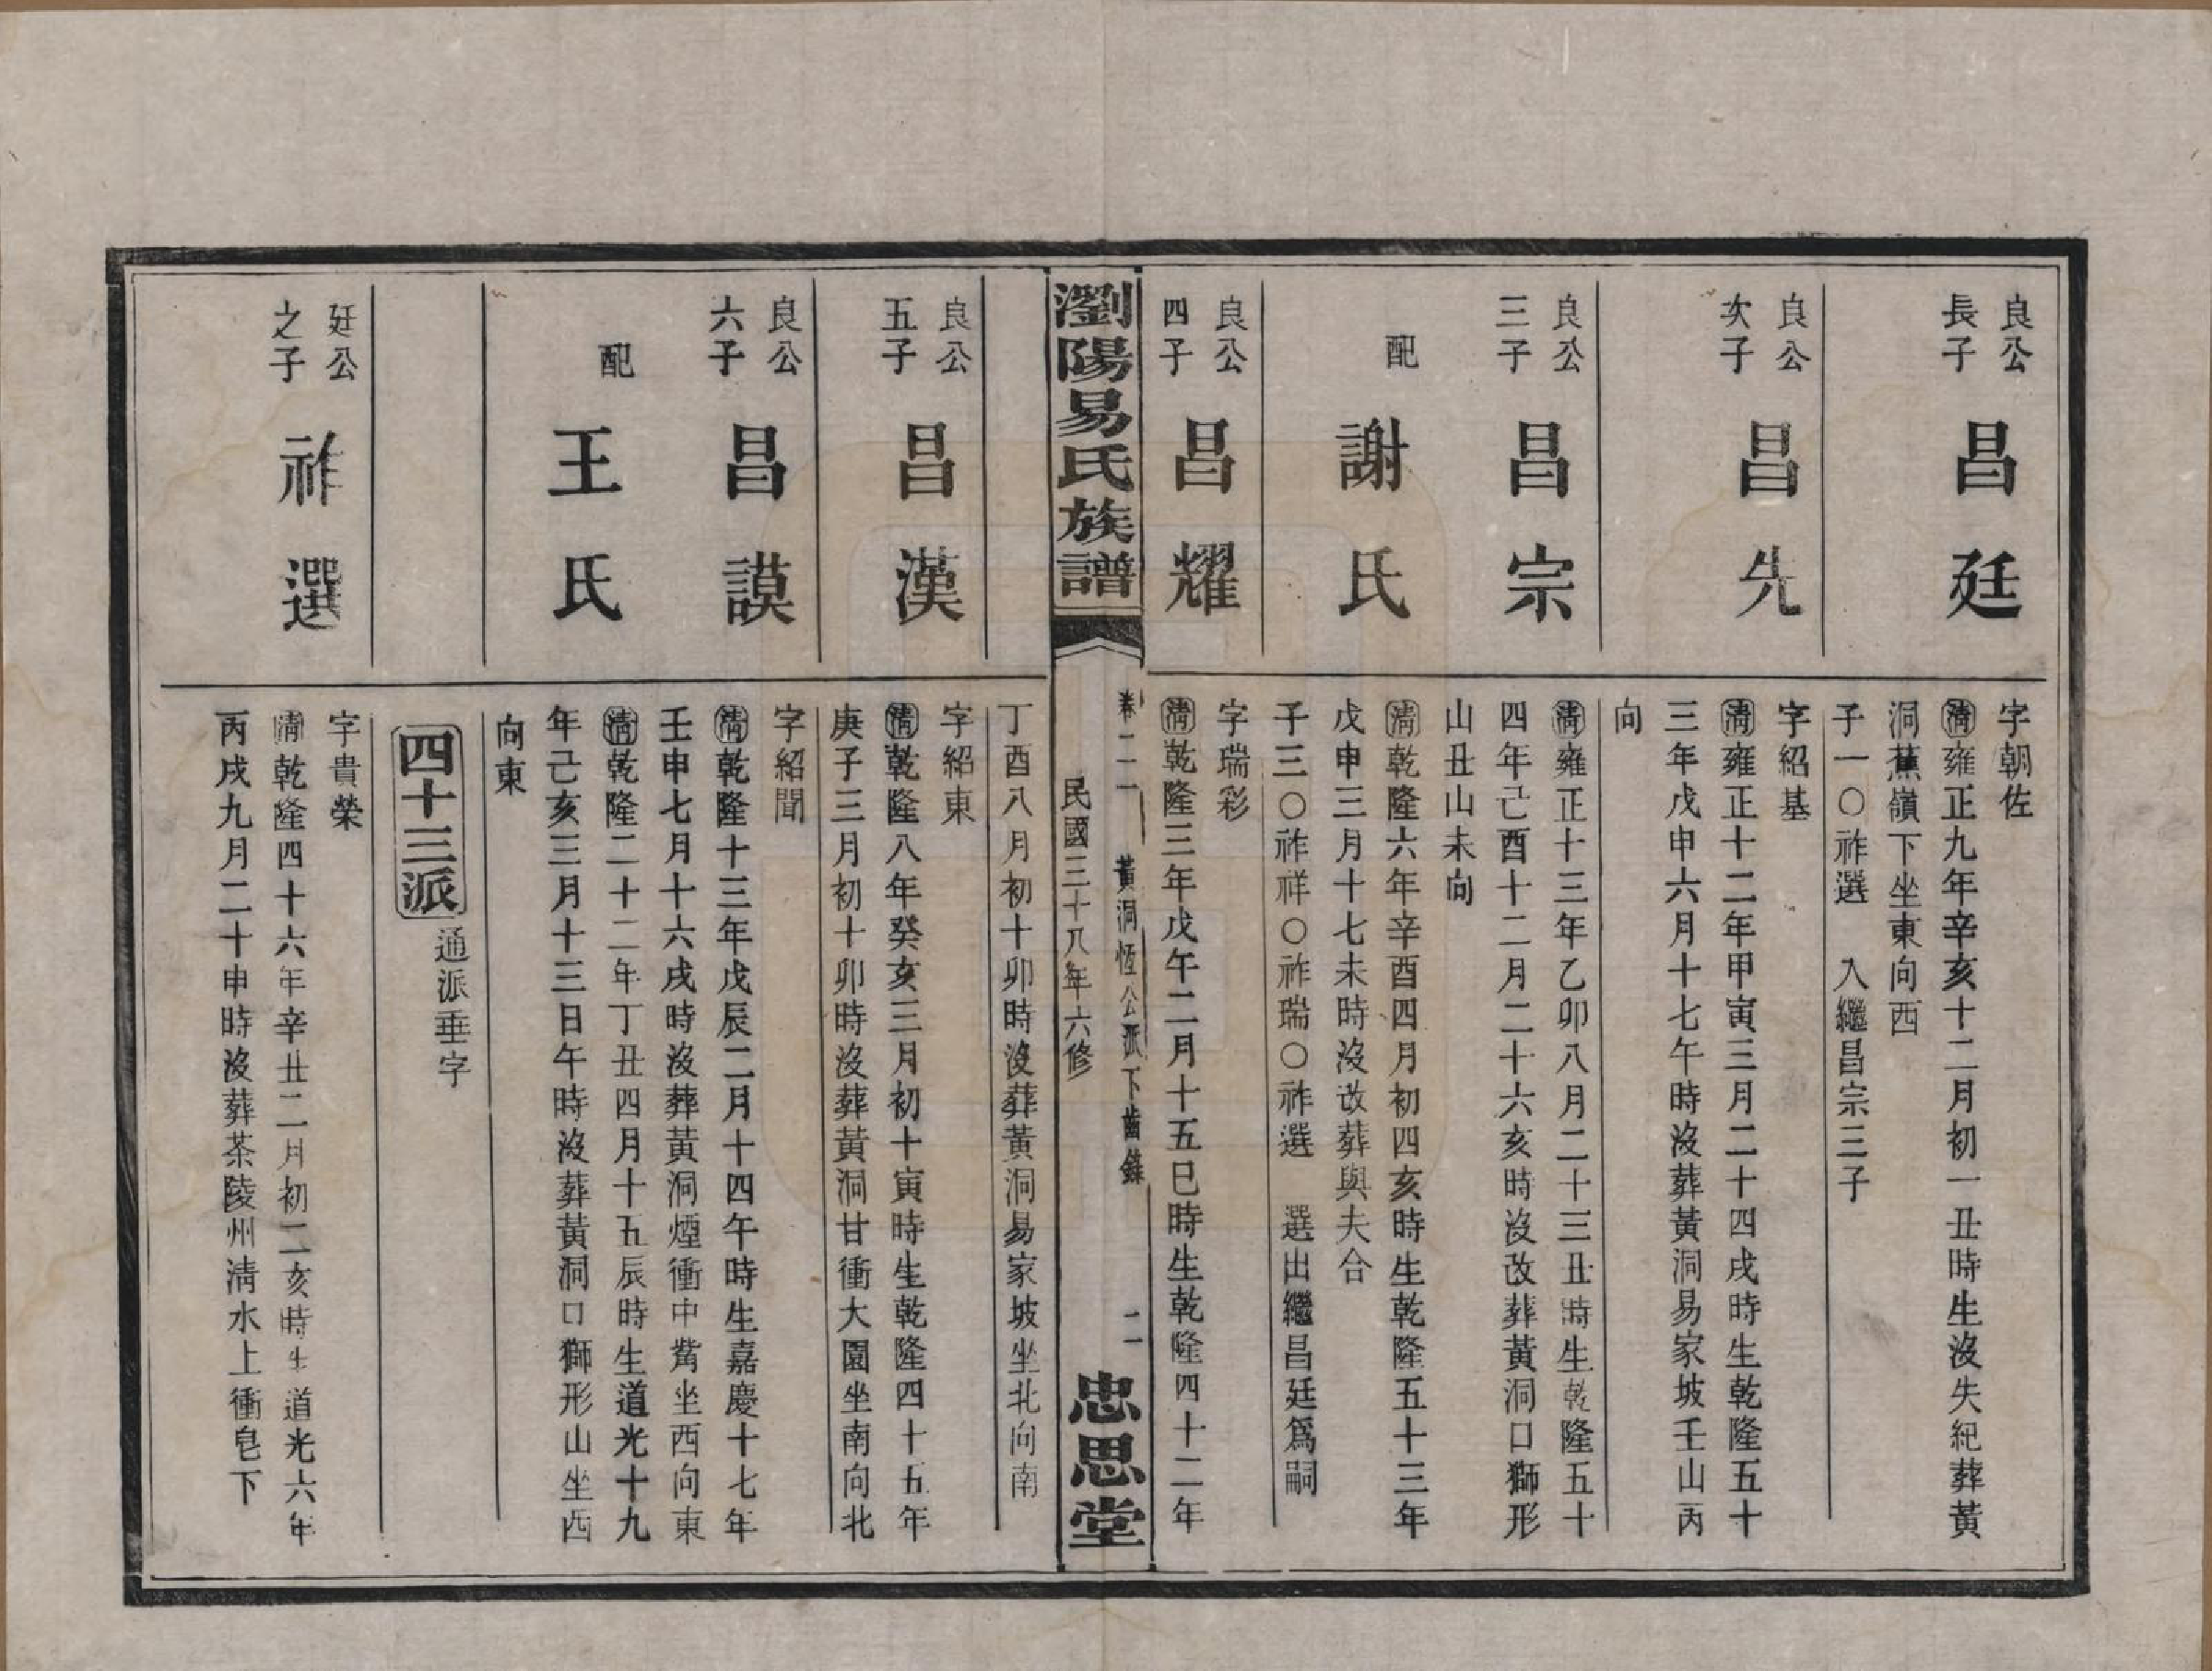 良公
長子
昌廷
字朝佐
清雍正九年辛亥十二月初一丑時生沒失紀葬黃
洞蕉嶺下坐東向西
子一〇祚選　入繼昌宗三子
良公
次子
昌先
字紹基
清雍正十二年甲寅三月二十四戌時生乾隆五十
三年戊申六月十七午時沒葬黃洞易家坡壬山丙
向
良公
三子
昌宗
清雍正十三年乙卯八月二十三丑時生乾隆五十
四年己酉十二月二十六亥時沒改葬黃洞口獅形
山丑山未向
配
謝氏
清乾隆六年辛酉四月初四亥時生乾隆五十三年
戊申三月十七未時沒改葬與夫合
子三〇祚祥〇祚瑞〇祚選　選出繼昌廷爲嗣
良公
四子
昌耀
字瑞彩
清乾隆三年戊午二月十五巳時生乾隆四十二年
瀏陽易氏族譜
卷二二　黃洞恆公派下齒錄　二
民國三十八年六修
忠思堂
丁酉八月初十卯時沒葬黃洞易家坡坐北向南
良公
五子
昌漢
字紹東
清乾隆八年癸亥三月初十寅時生乾隆四十五年
庚子三月初十卯時沒葬黃洞甘衝大園坐南向北
良公
六子
昌謨
字紹聞
清乾隆十三年戊辰二月十四午時生嘉慶十七年
壬申七月十六戌時沒葬黃洞煙衝中觜坐西向東
配
王氏
清乾隆二十二年丁丑四月十五辰時生道光十九
年己亥三月十三日午時沒葬黃洞口獅形山坐西
向東
四十三派
通派垂字
廷公
之子
祚選
字貴榮
清乾隆四十六年辛丑二月初二亥時生道光六年
丙戌九月二十申時沒葬茶陵州清水上衝皂下